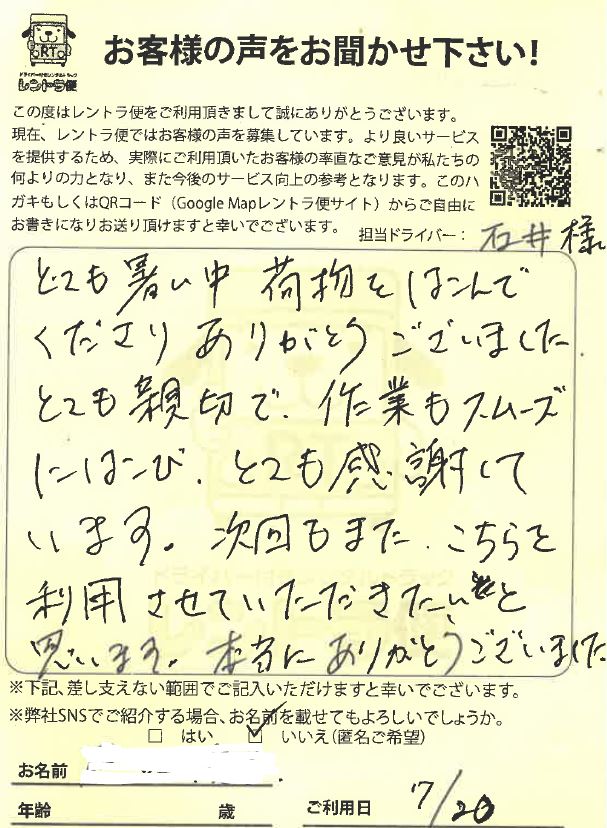 RT
ドライバー付きレンタルトラック
レントラ便
お客様の声をお聞かせ下さい!
この度はレントラ便をご利用頂きまして誠にありがとうございます。
現在、レントラ便ではお客様の声を募集しています。より良いサービス
を提供するため、実際にご利用頂いたお客様の率直なご意見が私たちの
何よりの力となり、また今後のサービス向上の参考となります。このハ
ガキもしくはQRコード（Google Mapレントラ便サイト）からご自由に
お書きになりお送り頂けますと幸いでございます。
担当ドライバー： 石井 様
とても暑い中 荷物をはこんで
くださり ありがとうございました
とても親切で、作業もスムーズ
にはこび、とても感謝して
います。次回もまた、こちらを
利用させていただきたいと
思います。本当にありがとうございました
※下記、差し支えない範囲でご記入いただけますと幸いでございます。
※弊社SNSでご紹介する場合、お名前を載せてもよろしいでしょうか。
□ はい ☑ いいえ（匿名ご希望）
お名前
年齢 歳 ご利用日 7/20